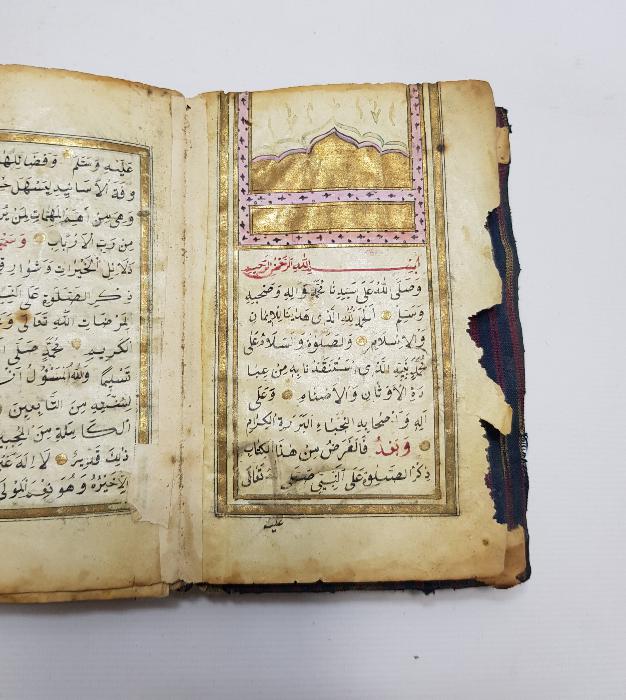 بسم الله الرحمن الرحيم
وصلى الله على سيدنا محمد واله وصحبه
وسلم الحمد لله الذى هدينا للايمان
والاسلام والصلوة والسلام على
محمد نبيه الذى استنقذنا به من عبا
دة الاوثان والاصنام وعلى
اله واصحابه النجباء البررة الكرام
وبعد فالغرض من هذا الكتاب
ذكر الصلوة على النبي صلى الله تعالى
عليه
عليه وسلم وفضائلها
وفة الاسانيد ليسهل
وهى من اهم المهمات لمن
من رب الارباب
دلائل الخيرات وشوارق
ذكر الصلوة على
لمرضات الله تعالى
الكريم محمد صلى
تسليما والله المسؤل ان
لسنته من التابعين
الكاملة من
ذلك قدير لا اله
الاخيره وهو نعم المولى